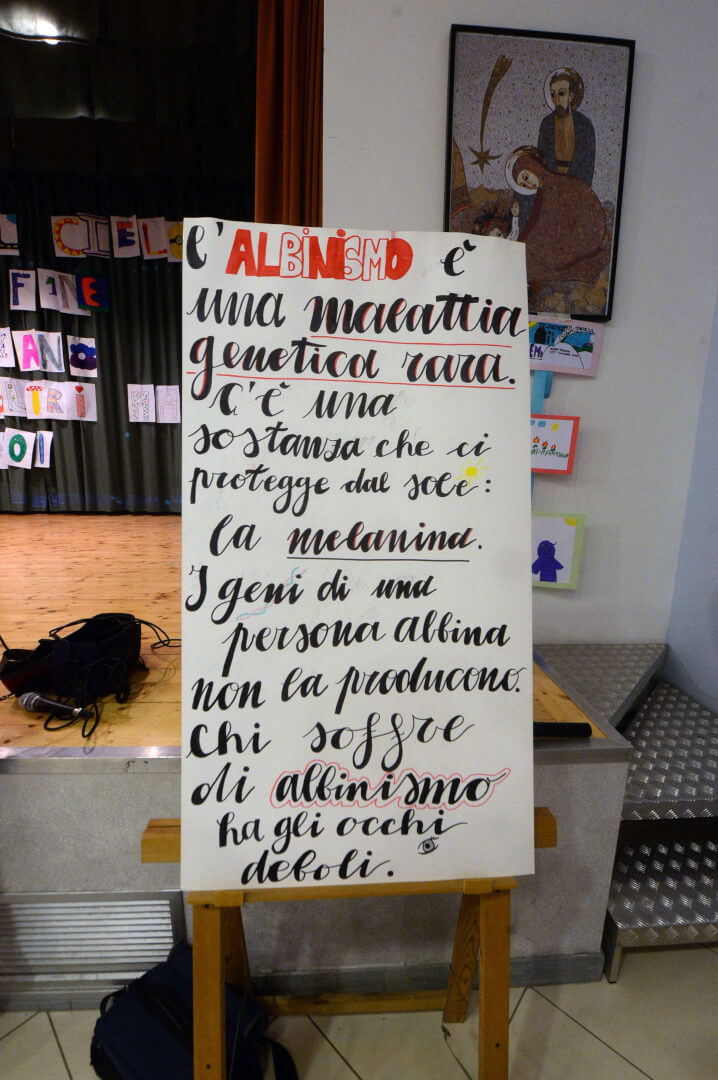 L'ALBINISMO è
una malattia
genetica rara.
C'è una
sostanza che ci
protegge dal sole:
la melanina.
I geni di una
persona albina
non la producono.
Chi soffre
di albinismo
ha gli occhi
deboli.
CIELO
FINE
ANO
TRI
OI